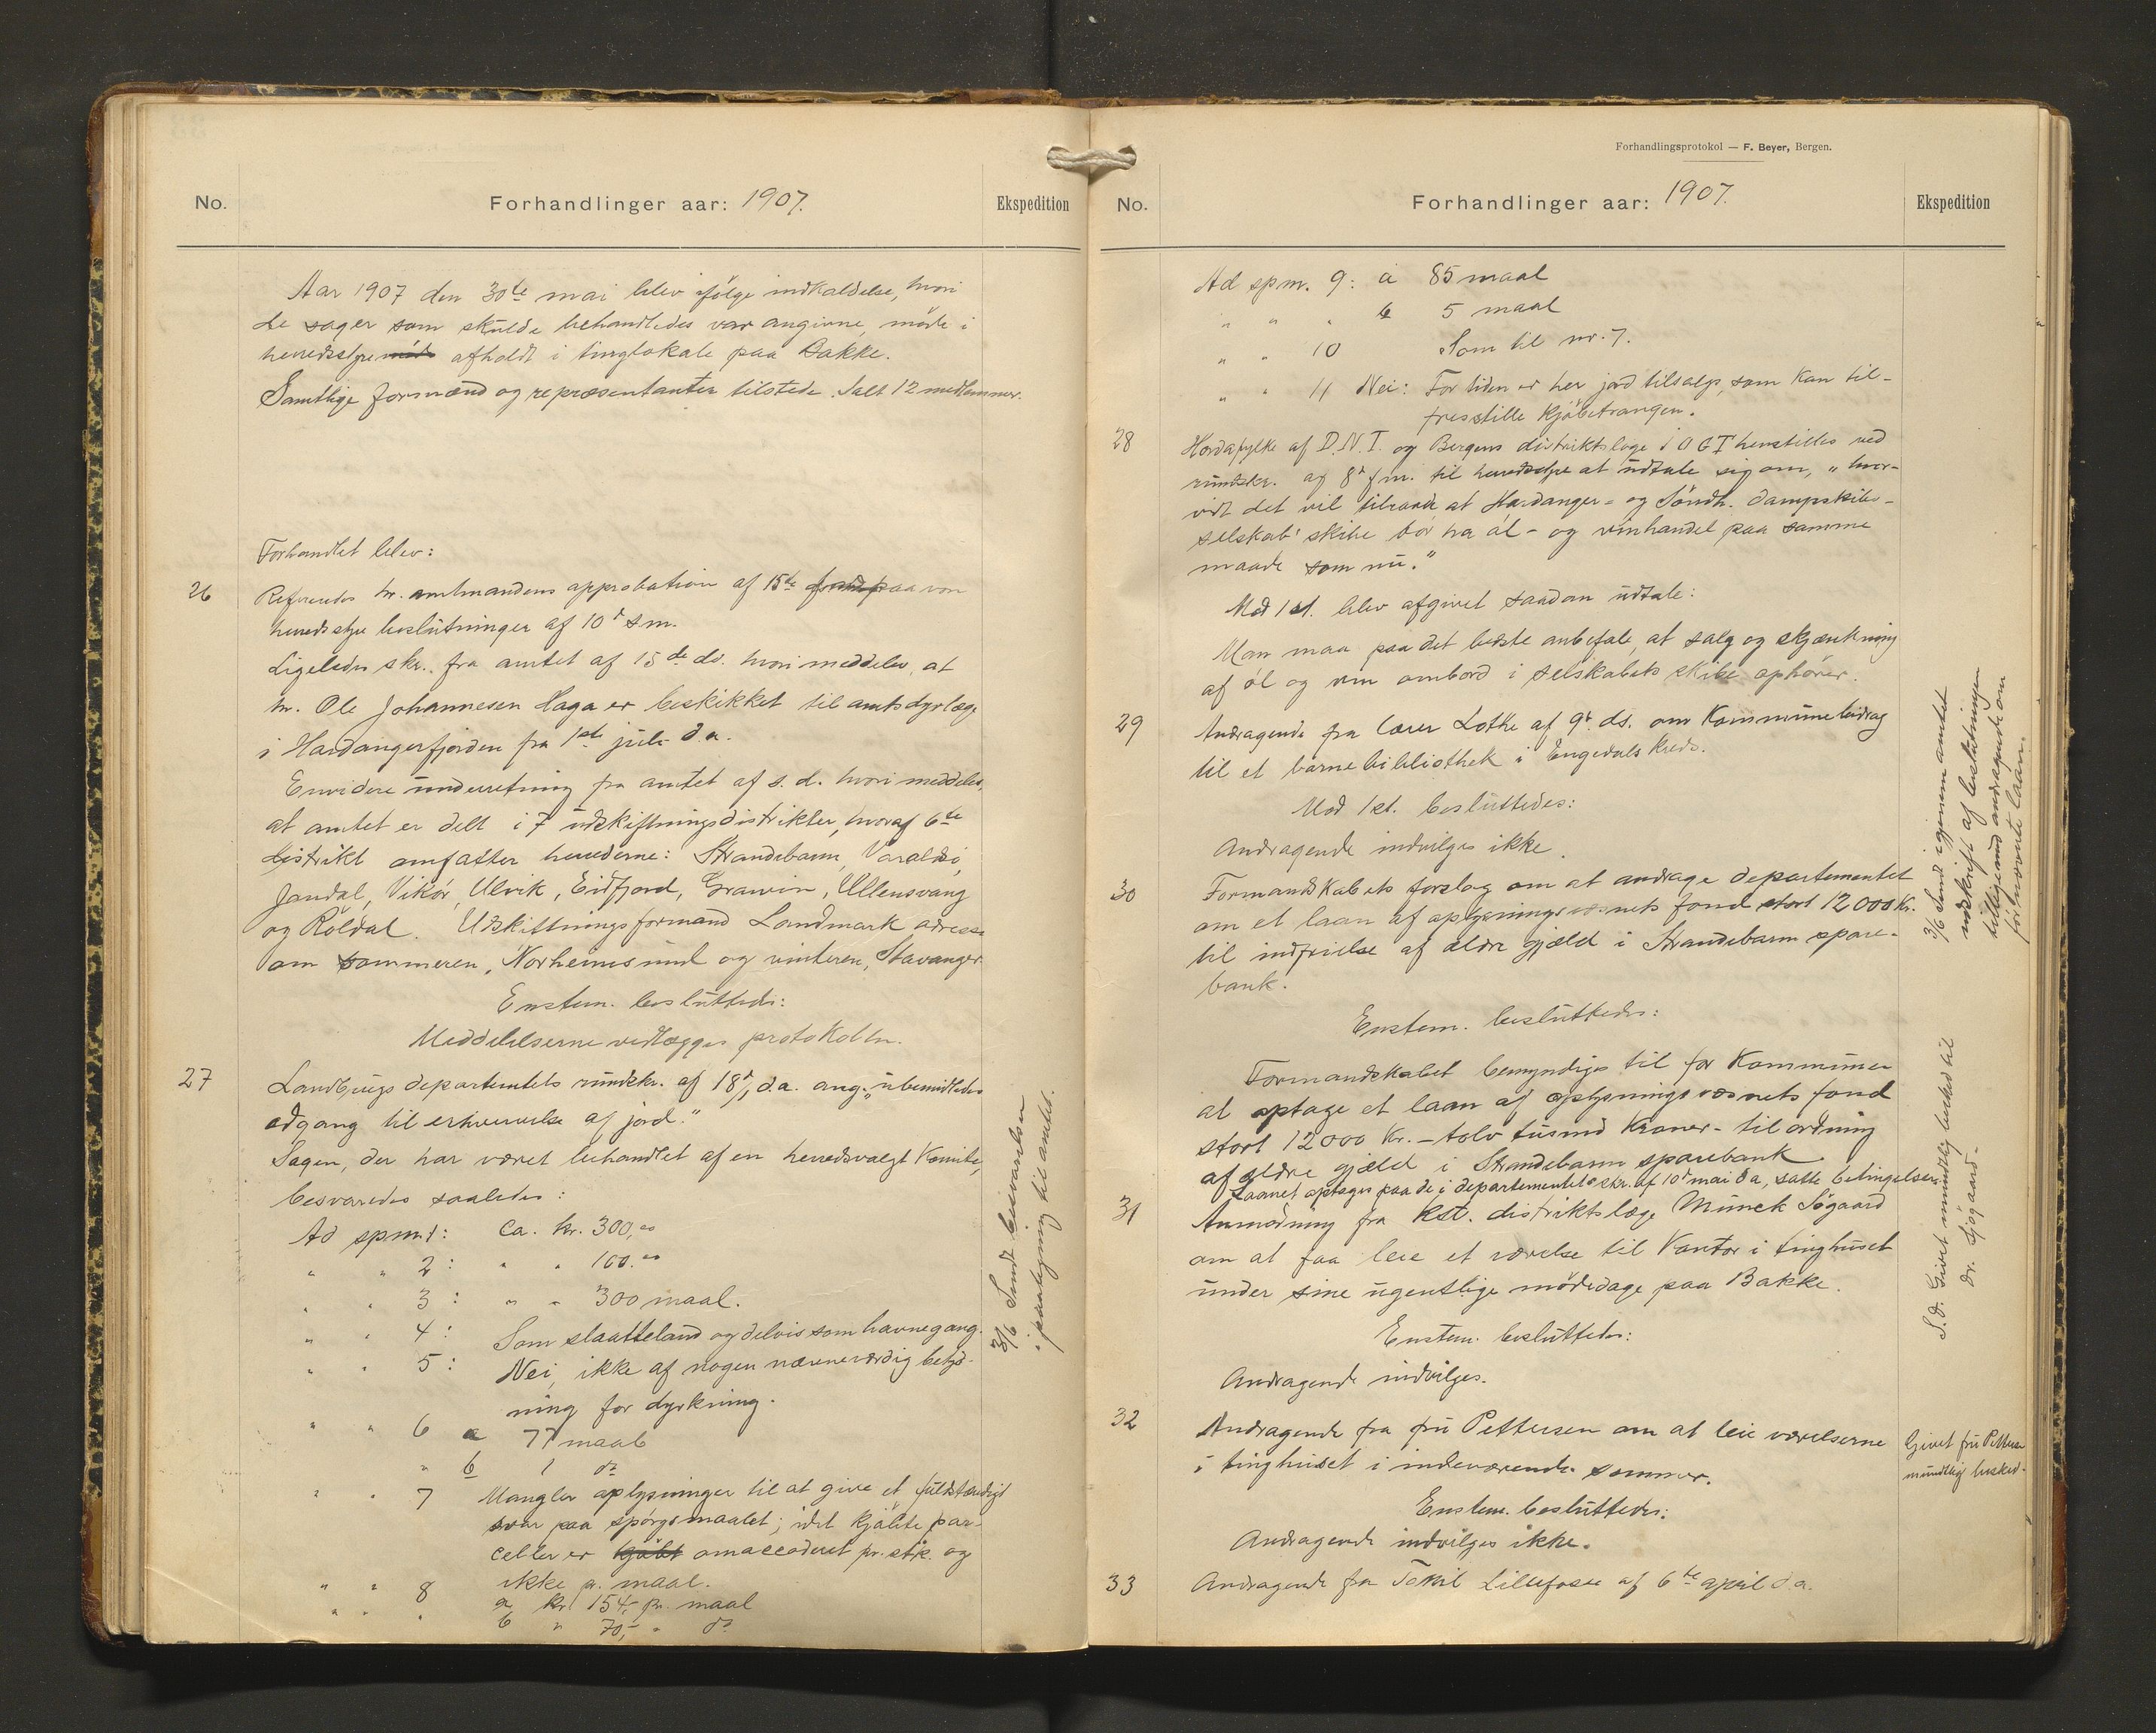 No.
Forhandlinger aar: 1907.
Ekspedition
Aar 1907 den 30te mai blev ifölge indkaldelse, hvori
de sager som skulde behandledes var angivne, möde i
herredsstyre afholdt i tinglokale paa Bakke.
Samtlige formænd og repræsentanter tilstede. Ialt 12 medlemmer.
Forhandlet blev:
26
Refereredes hr. amtmandens approbation af 15de paa
herredsstyrebeslutninger af 10de s.m.
Ligeledes skr. fra amtet af 15de ds. hvori meddeles, at
hr. Ole Johannesen Haga er beskikket til amtsdyrlæge
i Hardangerfjorden fra 1ste juli d.a.
Envidere underretning fra amtet af s.d. hvori meddeles,
at amtet er delt i 7 udskiftningsdistrikter, hvoraf 6te
distrikt omfatter herrederne: Strandebarm, Varaldsö,
Jondal, Vikör, Ulvik, Eidfjord, Granvin, Ullensvang
og Röldal. Udskiftningsformand Landmark adresse
om sommeren, Norheimsund og vinteren, Stavanger.
Enstem. besluttedes:
Meddelelserne vedlægges protokollen.
27
Landbrugsdepartemtets rundskr. af 18/1 d.a. ang. "ubemidledes
adgang til erhvervelse af jord."
Sagen, der har været behandlet af en herredsvalgt komite,
besvaredes saaledes:
Ad spm. 1: Ca. kr. 300,00
" " 2: " " 100.00
" " 3: " " 300 maal.
" " 4: Som slaatteland og delvis som havnegang.
" " 5: Nei, ikke af nogen nævneværdig betyd-
ning for dyrkning.
" " 6 a 77 maal
" b 1 do
" " 7 Mangler oplysninger til at give et fuldstændigt
svar paa spörgsmaalet; idet kjöbte par-
celler er kjöbt omaccoderet pr. stk. og
ikke pr. maal.
" " 8 a kr. 154,- pr. maal
" " " b " 70,- " do
3/6 Sendt besvarelsen
i paategning til amtet.
Forhandlingsprotokol — F. Beyer, Bergen.
No.
Forhandlinger aar: 1907.
Ekspedition
Ad spm. 9: a 85 maal
" " " b 5 maal
" " 10 Som til nr. 7.
" " 11 Nei: For tiden er her jord tilsalgs, som kan til-
fresstille kjöbetrangen.
28
Hordafylke af D.N.T. og Bergens distriktsloge i O G T henstilles ved
rundskr. af 8de f.m. til herredsstyre at udtale sig om, "hvor-
vidt det vil tilraade at Hardanger- og Söndh. dampskibs-
selskab' skibe bör ha öl- og vinhandel paa samme
maade som nu."
Mod 1 st. blev afgivet saadan udtale:
Man maa paa det bedste anbefale, at salg og skjænkning
af öl og vin ombord i selskabets skibe ophörer.
29
Andragende fra lærer Lothe af 9de ds. om kommunebidrag
til et barnebibliothek i Engedals kreds.
Mod 1 st. besluttedes:
Andragende indvilges ikke.
30
Formandskabets forslag om at andrage departementet
om et laan af oplysningsvæsnets fond stort 12000 kr.
til indfrielse af ældre gjæld i Strandebarm spare-
bank.
Enstem. besluttedes:
Formandskabet bemyndiges til for kommunen
at optage et laan af oplysningsvæsnets fond
stort 12000 kr. - tolv tusind kroner - til ordning
af ældre gjæld i Strandebarm sparebank.
Laanet optages paa de i departementets skr. af 10de mai d.a. satte betingelser.
31
Anmodning fra kst. distriktslæge Munck Sögaard
om at faa leie et værelse til kontor i tinghuset
under sine ugentlige mödedage paa Bakke.
Enstem. besluttedes:
Andragende indvilges.
32
Andragende fra fru Pettersen om at leie værelserne
i tinghuset i indeværende sommer.
Enstem. besluttedes:
Andragende indvilges ikke.
33
Andragende fra Lillefosse af 6te april d.a.
3/6 Sendt igjennem amtet
udskrift af beslutningen
tilligemed andragendt om
fölnævnte laan.
S.d. Givet mundtlig besked til
dr. Sjögaard.
Givet fru Pettersen
mundtlig besked.